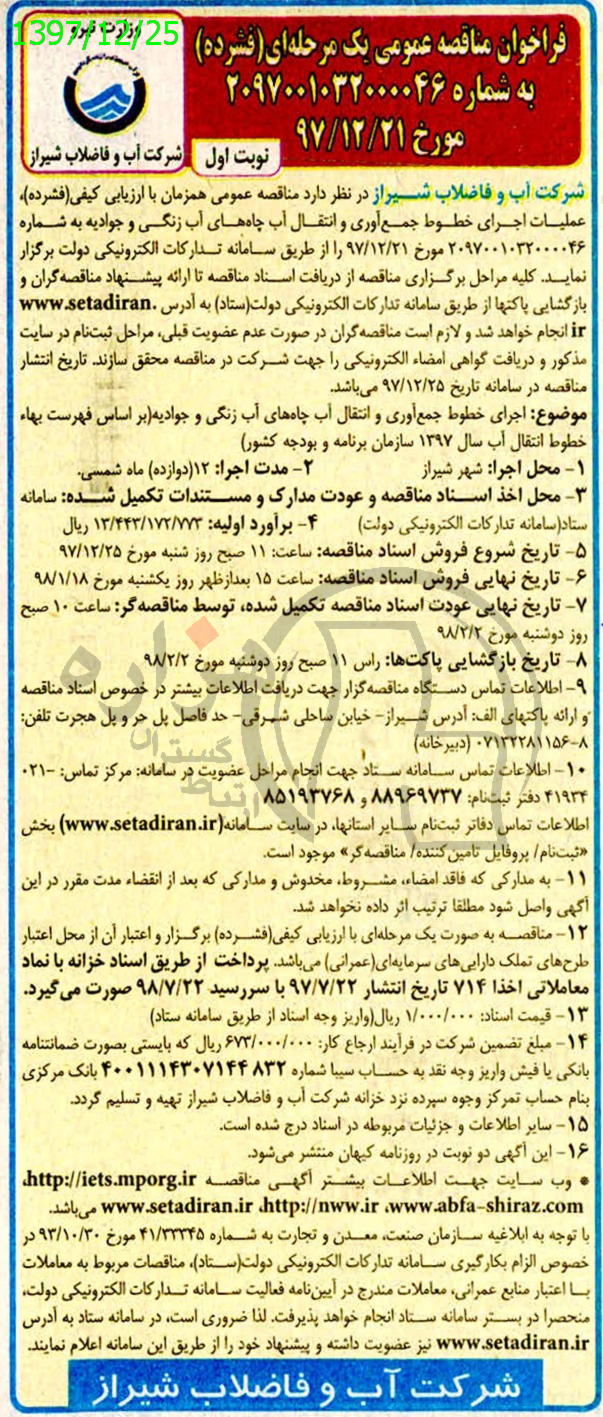 1397/12/25
وزارت نیرو
شرکت آب و فاضلاب شیراز
فراخوان مناقصه عمومی یک مرحله‌ای(فشرده)
به شماره ۲۰۹۷۰۰۱۰۳۲۰۰۰۰۴۶
مورخ ۹۷/۱۲/۲۱
نوبت اول
شرکت آب و فاضلاب شیراز در نظر دارد مناقصه عمومی همزمان با ارزیابی کیفی(فشرده)،
عملیات اجرای خطوط جمع‌آوری و انتقال آب چاه‌های آب زنگی و جوادیه به شماره
۲۰۹۷۰۰۱۰۳۲۰۰۰۰۴۶ مورخ ۹۷/۱۲/۲۱ را از طریق سامانه تدارکات الکترونیکی دولت برگزار
نماید. کلیه مراحل برگزاری مناقصه از دریافت اسناد مناقصه تا ارائه پیشنهاد مناقصه‌گران و
بازگشایی پاکتها از طریق سامانه تدارکات الکترونیکی دولت(ستاد) به آدرس www.setadiran.
ir انجام خواهد شد و لازم است مناقصه‌گران در صورت عدم عضویت قبلی، مراحل ثبت‌نام در سایت
مذکور و دریافت گواهی امضاء الکترونیکی را جهت شرکت در مناقصه محقق سازند. تاریخ انتشار
مناقصه در سامانه تاریخ ۹۷/۱۲/۲۵ می‌باشد.
موضوع: اجرای خطوط جمع‌آوری و انتقال آب چاه‌های آب زنگی و جوادیه(بر اساس فهرست بهاء
خطوط انتقال آب سال ۱۳۹۷ سازمان برنامه و بودجه کشور)
۱- محل اجرا: شهر شیراز ۲- مدت اجرا: ۱۲(دوازده) ماه شمسی.
۳- محل اخذ اسناد مناقصه و عودت مدارک و مستندات تکمیل شده: سامانه
ستاد(سامانه تدارکات الکترونیکی دولت) ۴- برآورد اولیه: ۱۳/۴۴۳/۱۷۲/۷۷۳ ریال
۵- تاریخ شروع فروش اسناد مناقصه: ساعت: ۱۱ صبح روز شنبه مورخ ۹۷/۱۲/۲۵
۶- تاریخ نهایی فروش اسناد مناقصه: ساعت ۱۵ بعدازظهر روز یکشنبه مورخ ۹۸/۱/۱۸
۷- تاریخ نهایی عودت اسناد مناقصه تکمیل شده، توسط مناقصه‌گر: ساعت ۱۰ صبح
روز دوشنبه مورخ ۹۸/۲/۲
۸- تاریخ بازگشایی پاکت‌ها: راس ۱۱ صبح روز دوشنبه مورخ ۹۸/۲/۲
۹- اطلاعات تماس دستگاه مناقصه‌گزار جهت دریافت اطلاعات بیشتر در خصوص اسناد مناقصه
و ارائه پاکتهای الف: آدرس شیراز- خیابن ساحلی شرقی- حد فاصل پل حر و پل هجرت تلفن:
۸-۰۷۱۳۲۲۸۱۱۵۶ (دبیرخانه)
۱۰- اطلاعات تماس سامانه ستاد جهت انجام مراحل عضویت در سامانه: مرکز تماس: ۰۲۱-
۴۱۹۳۴ دفتر ثبت‌نام: ۸۸۹۶۹۷۳۷ و ۸۵۱۹۳۷۶۸
اطلاعات تماس دفاتر ثبت‌نام سایر استانها، در سایت سامانه(www.setadiran.ir) بخش
«ثبت‌نام/ پروفایل تامین‌کننده/ مناقصه‌گر» موجود است.
۱۱- به مدارکی که فاقد امضاء، مشروط، مخدوش و مدارکی که بعد از انقضاء مدت مقرر در این
آگهی واصل شود مطلقا ترتیب اثر داده نخواهد شد.
۱۲- مناقصه به صورت یک مرحله‌ای با ارزیابی کیفی(فشرده) برگزار و اعتبار آن از محل اعتبار
طرح‌های تملک دارایی‌های سرمایه‌ای(عمرانی) می‌باشد. پرداخت از طریق اسناد خزانه با نماد
معاملاتی اخذا ۷۱۴ تاریخ انتشار ۹۷/۷/۲۲ با سررسید ۹۸/۷/۲۲ صورت می‌گیرد.
۱۳- قیمت اسناد: ۱/۰۰۰/۰۰۰ ریال(واریز وجه اسناد از طریق سامانه ستاد)
۱۴- مبلغ تضمین شرکت در فرآیند ارجاع کار: ۶۷۳/۰۰۰/۰۰۰ ریال که بایستی بصورت ضمانتنامه
بانکی یا فیش واریز وجه نقد به حساب سیبا شماره ۴۰۰۱۱۱۴۳۰۷۱۴۴۸۳۲ بانک مرکزی
بنام حساب تمرکز وجوه سپرده نزد خزانه شرکت آب و فاضلاب شیراز تهیه و تسلیم گردد.
۱۵- سایر اطلاعات و جزئیات مربوطه در اسناد درج شده است.
۱۶- این آگهی دو نوبت در روزنامه کیهان منتشر می‌شود.
* وب سایت جهت اطلاعات بیشتر آگهی مناقصه http://iets.mporg.ir،
www.abfa-shiraz.com، http://nww.ir، www.setadiran.ir می‌باشد.
با توجه به ابلاغیه سازمان صنعت، معدن و تجارت به شماره ۴۱/۳۳۳۴۵ مورخ ۹۳/۱۰/۳۰ در
خصوص الزام بکارگیری سامانه تدارکات الکترونیکی دولت(ستاد)، مناقصات مربوط به معاملات
با اعتبار منابع عمرانی، معاملات مندرج در آیین‌نامه فعالیت سامانه تدارکات الکترونیکی دولت،
منحصرا در بستر سامانه ستاد انجام خواهد پذیرفت. لذا ضروری است، در سامانه ستاد به آدرس
www.setadiran.ir نیز عضویت داشته و پیشنهاد خود را از طریق این سامانه اعلام نمایند.
شرکت آب و فاضلاب شیراز